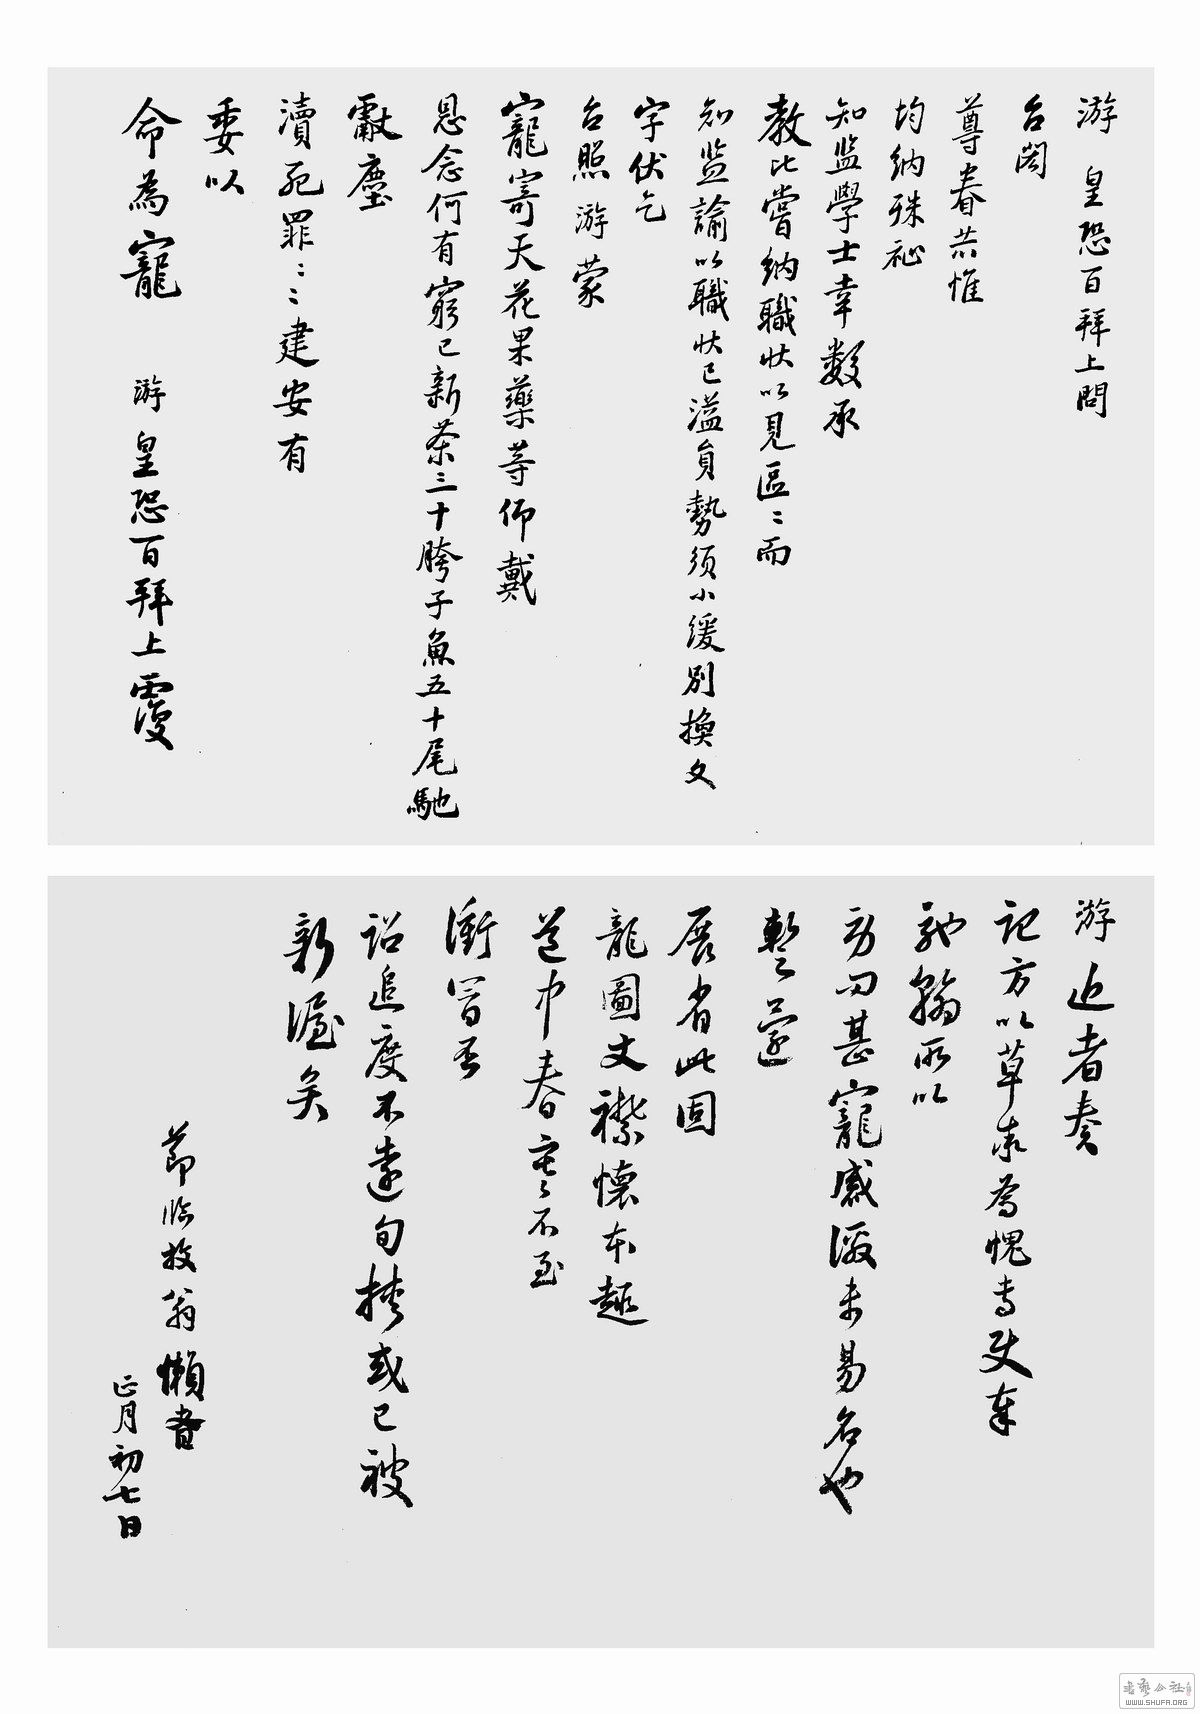 游 皇恐百拜上問
台閤
尊眷共惟
均納殊祉
知監學士幸數承
教比嘗納職狀以見區〻而
知監諭以職狀已溢員勢須小緩別換文
字伏乞
台照 游蒙
寵寄天花果藥等仰戴
恩念何有窮已新茶三十胯子魚五十尾馳
獻塵
瀆死罪〻〻建安有
委以
命為寵 游皇恐百拜上覆
游近者奏
記方以草率為愧專使奉
馳翰所以
勞問甚寵感激未易名也
暫還
展省此固
龍圖丈襟懷本趣
道中春寒不至
衝冒否
詔追度不遠旬浹或已被
新渥矣
節臨放翁 懶
正月初七日
書藝公社
WWW.SHUFA.ORG